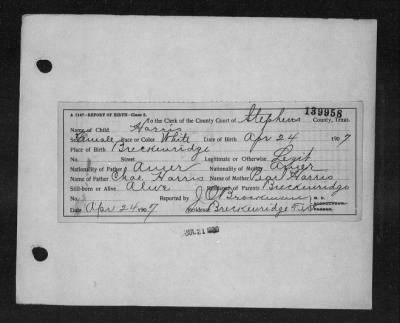 139958
A 1147—REPORT OF BIRTH—Class 5. To the Clerk of the County Court of Stephens County, Texas.
Name of Child Harris
Sex Female Race or Color White Date of Birth Apr 24 1907
Place of Birth Breckenridge
No. Street Legitimate or Otherwise Legit
Nationality of Father Amer Nationality of Mother Amer
Name of Father Chas. Harris Name of Mother Pearl Harris
Still-born or Alive Alive Residence of Parents Breckenridge
No. Reported by M. D.
Date Apr 24 1907 Residence Breckenridge Tex